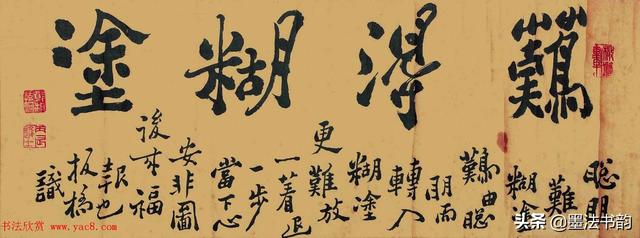 難得糊塗
聰明
難
糊塗
難由聰
明而
轉入
糊塗
更難放
一着退
一步
當下心
安非圖
後來福
報也
板橋
識
书法欣赏
www.yac8.com
头条 @墨法书韵